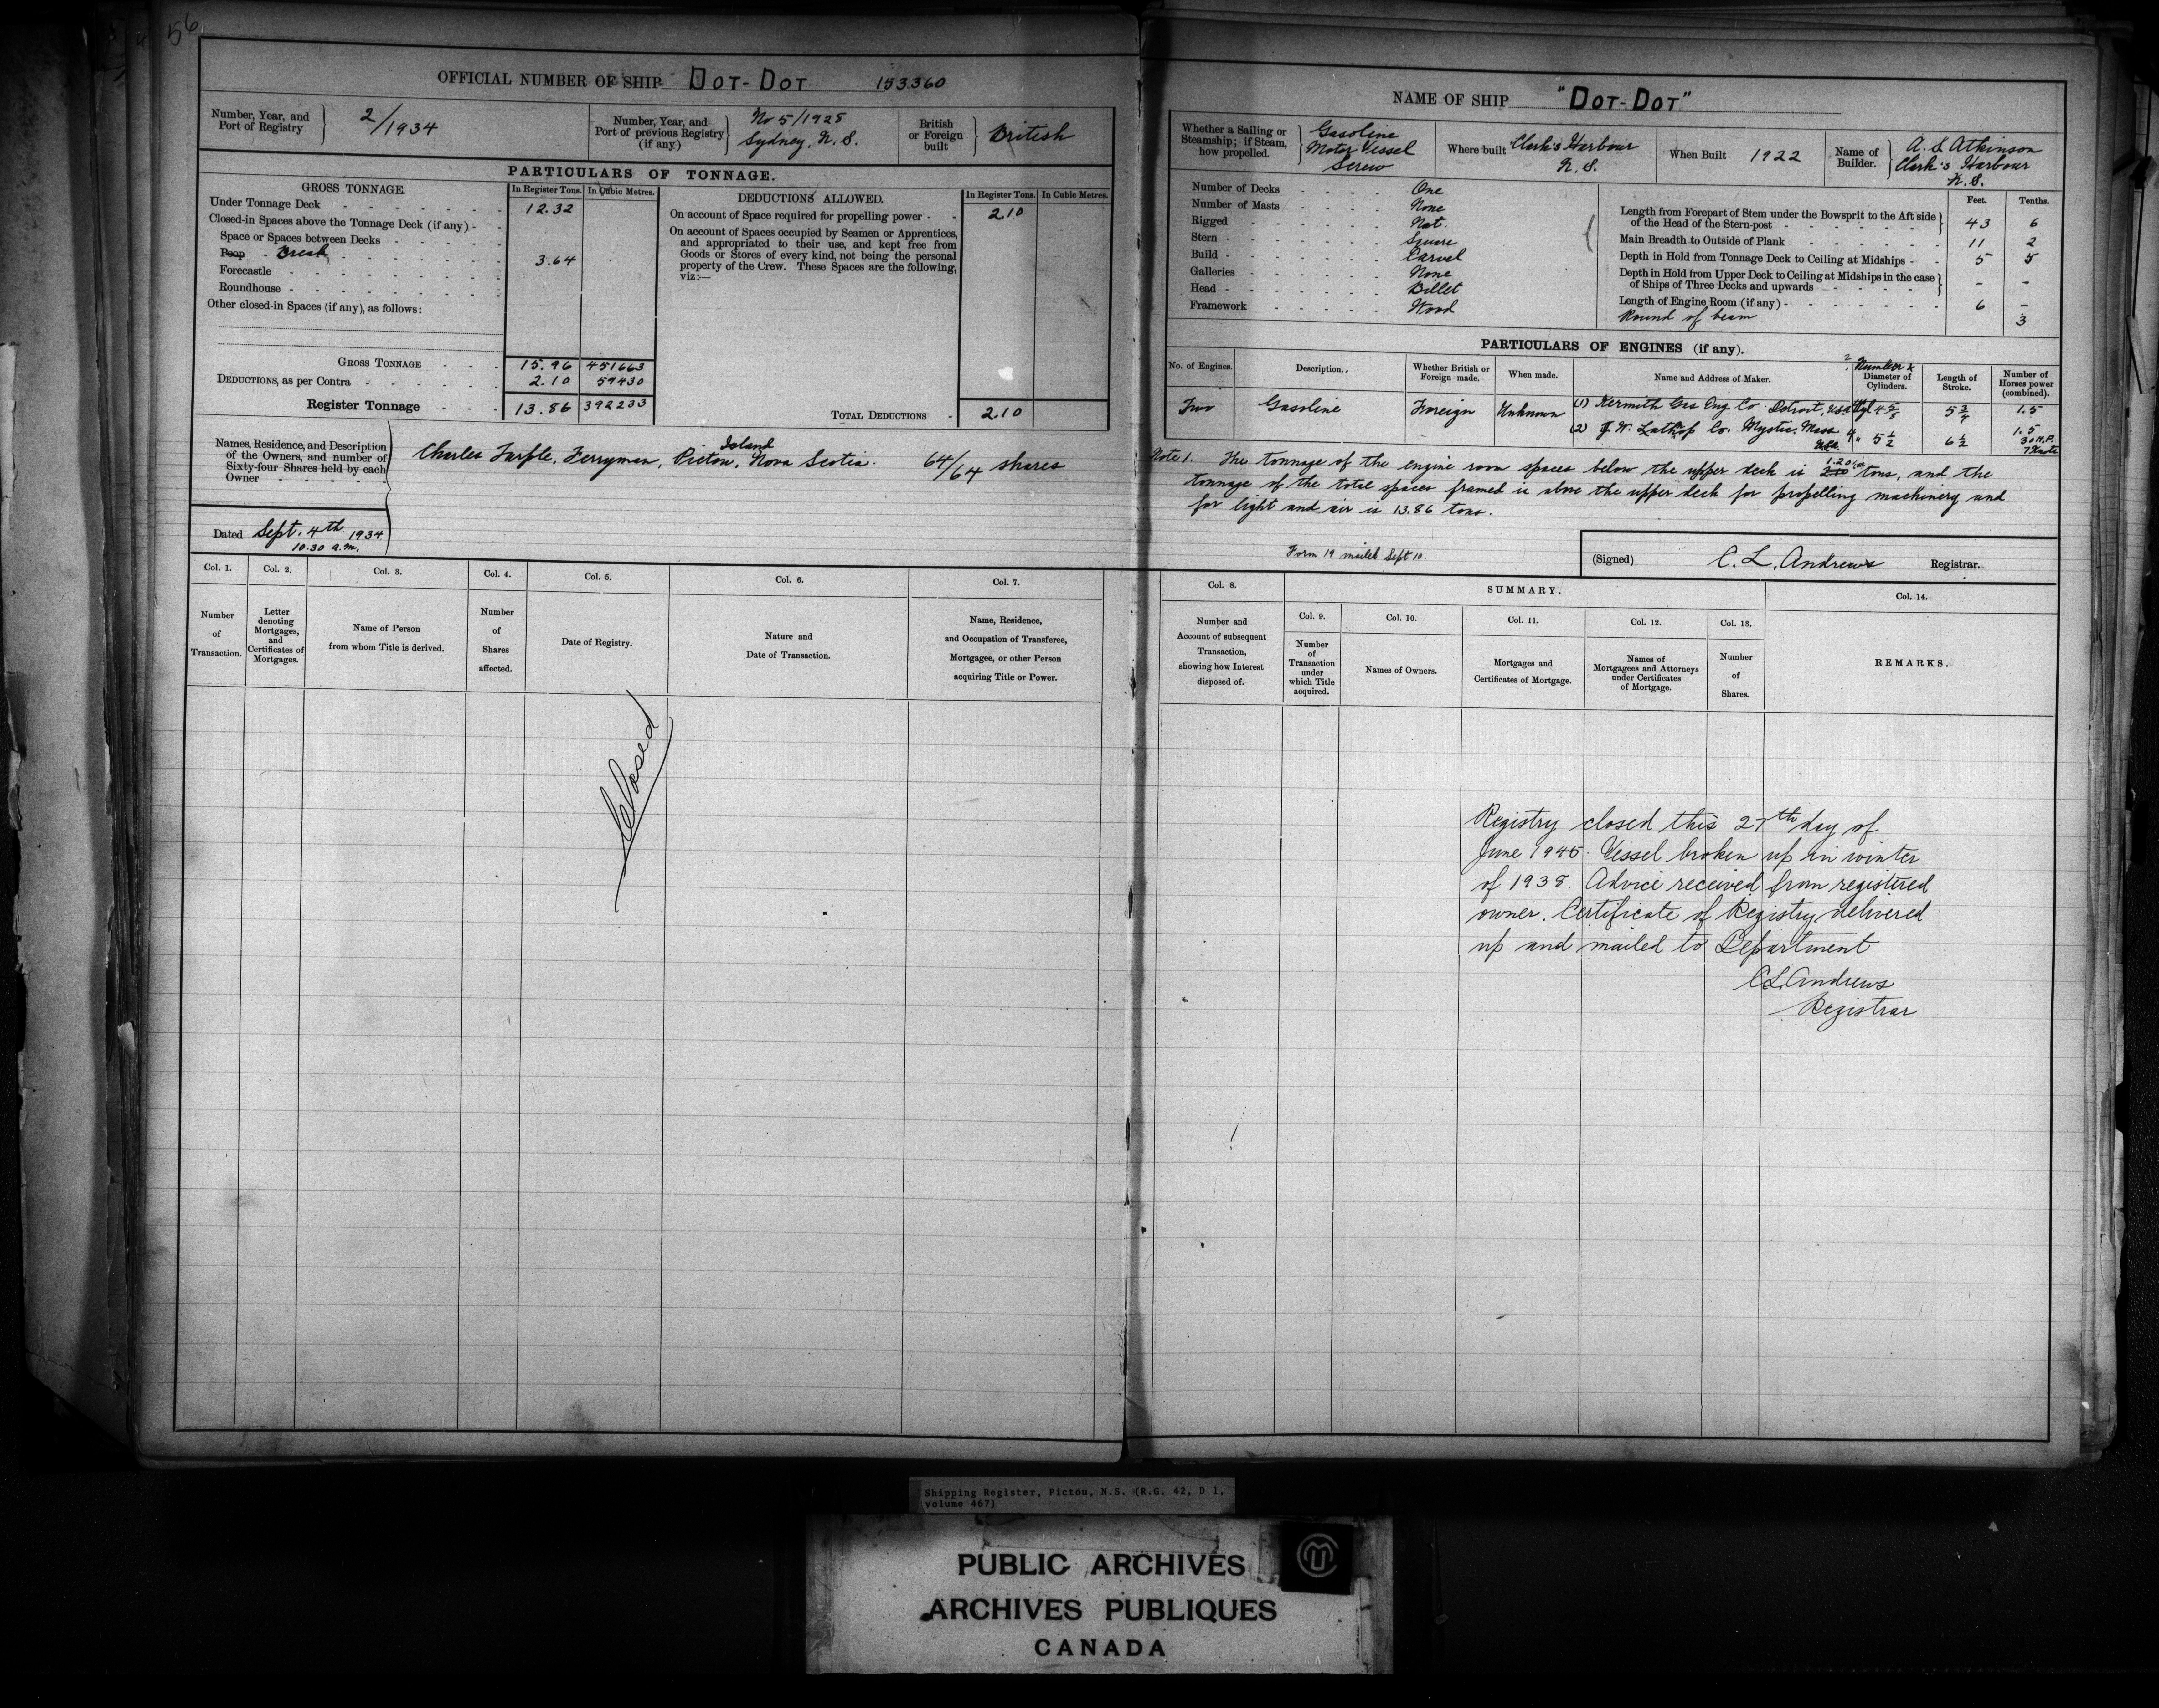 56
OFFICIAL NUMBER OF SHIP DOT-DOT 153360
Number, Year, and Port of Registry 2/1934
Number, Year, and Port of previous Registry (if any) No 5/1928 Sydney, N.S.
British or Foreign built British
PARTICULARS OF TONNAGE.
GROSS TONNAGE. In Register Tons. In Cubic Metres.
Under Tonnage Deck 12.32
Closed-in Spaces above the Tonnage Deck (if any)
Space or Spaces between Decks
Poop Break 3.64
Forecastle
Roundhouse
Other closed-in Spaces (if any), as follows:
GROSS TONNAGE 15.96 451663
DEDUCTIONS, as per Contra 2.10 59430
Register Tonnage 13.86 392233
DEDUCTIONS ALLOWED. In Register Tons. In Cubic Metres.
On account of Space required for propelling power 2.10
On account of Spaces occupied by Seamen or Apprentices,
and appropriated to their use, and kept free from
Goods or Stores of every kind, not being the personal
property of the Crew. These Spaces are the following,
viz:—
TOTAL DEDUCTIONS 2.10
Names, Residence, and Description
of the Owners, and number of
Sixty-four Shares held by each
Owner
Charles Turple, Ferryman, Pictou Island, Nova Scotia. 64/64 shares
Dated Sept. 4th. 1934
10.30 a.m.
Col. 1. Col. 2. Col. 3. Col. 4. Col. 5. Col. 6. Col. 7.
Number of Transaction.
Letter denoting Mortgages, and Certificates of Mortgages.
Name of Person from whom Title is derived.
Number of Shares affected.
Date of Registry.
Nature and Date of Transaction.
Name, Residence, and Occupation of Transferee, Mortgagee, or other Person acquiring Title or Power.
Closed
NAME OF SHIP "DOT-DOT"
Whether a Sailing or Steamship; if Steam, how propelled. Gasoline Motor Vessel Screw
Where built Clark's Harbour N.S.
When Built 1922
Name of Builder. A. S Atkinson Clark's Harbour N.S.
Number of Decks One
Number of Masts None
Rigged Not.
Stern Square
Build Carvel
Galleries None
Head Billet
Framework Wood
Feet. Tenths.
Length from Forepart of Stem under the Bowsprit to the Aft side of the Head of the Stern-post 43 6
Main Breadth to Outside of Plank 11 2
Depth in Hold from Tonnage Deck to Ceiling at Midships 5 5
Depth in Hold from Upper Deck to Ceiling at Midships in the case of Ships of Three Decks and upwards - -
Length of Engine Room (if any) 6 -
Round of beam 3
PARTICULARS OF ENGINES (if any).
No. of Engines. Description. Whether British or Foreign made. When made. Name and Address of Maker. Number & Diameter of Cylinders. Length of Stroke. Number of Horses power (combined).
Two Gasoline Foreign Unknown (1) Kermith Gas Eng Co. Detroit, USA 4 5/8 5 3/4 1.5
(2) J. W. Lathrop Co. Mystic, Mass USA 4" 5 1/2 6 1/2 1.5
30 H.P.
7 Knots
Note 1. The tonnage of the engine room spaces below the upper deck is 2.10 1.20 tons, and the
tonnage of the total spaces framed in above the upper deck for propelling machinery and
for light and air is 13.86 tons.
Form 19 mailed Sept 10.
(Signed) C. L. Andrews Registrar.
Col. 8. SUMMARY. Col. 14.
Col. 9. Col. 10. Col. 11. Col. 12. Col. 13.
Number and Account of subsequent Transaction, showing how Interest disposed of.
Number of Transaction under which Title acquired.
Names of Owners.
Mortgages and Certificates of Mortgage.
Names of Mortgagees and Attorneys under Certificates of Mortgage.
Number of Shares.
REMARKS.
Registry closed this 27th day of
June 1945. Vessel broken up in winter
of 1938. Advice received from registered
owner. Certificate of Registry delivered
up and mailed to Department
C.L. Andrews
Registrar
Shipping Register, Pictou, N.S. (R.G. 42, D 1,
volume 467)
PUBLIC ARCHIVES
ARCHIVES PUBLIQUES
CANADA